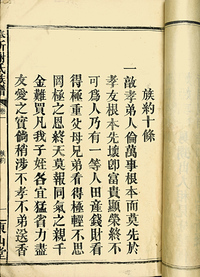 族約十條
一敦孝弟人倫萬事根本而莫先於
孝友根本先壞卽富貴顯榮終不
可爲人乃有一等人田產錢財看
得極重父母兄弟看得極輕不思
罔極之恩終天莫報同氣之親千
金難買凡我子姪各宜猛省力盡
友愛之實倘稍涉不孝不弟送香
氏族譜
族約
東山堂